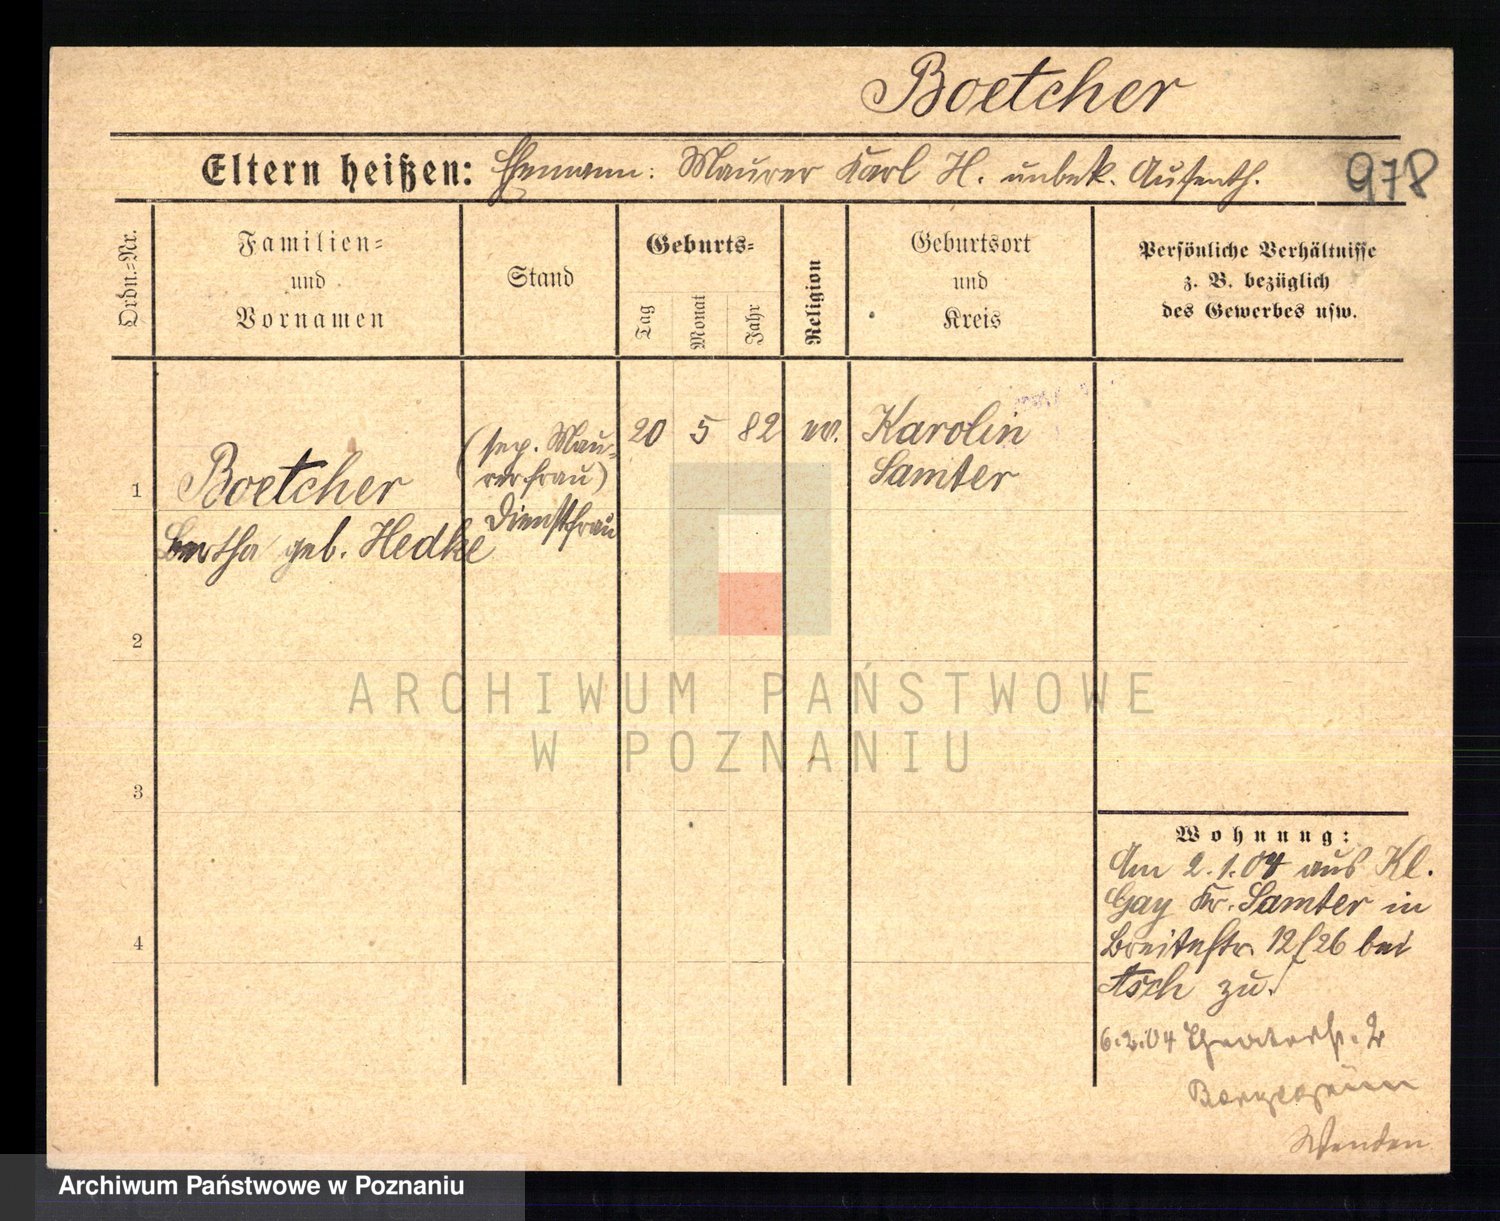 Boetcher
Eltern heißen: Ehemann: Maurer Karl H. unbek. Aufenth.
978
Ordn.-Nr.
Familien-
und
Vornamen
Stand
Geburts-
Tag
Monat
Jahr
Religion
Geburtsort
und
Kreis
Persönliche Verhältnisse
z. B. bezüglich
des Gewerbes usw.
1
Boetcher
Bertha geb. Hedke
(sep. Mau-
rerfrau)
Dienstfrau
20 5 82 ev.
Karolin
Samter
2
3
4
Wohnung:
Am 2.1.04 aus Kl.
Gay Kr. Samter in
Breitestr. 12/26 bei
Asch zu.
6.2.04 Theaterstr. 2
Wenden
ARCHIWUM PAŃSTWOWE
W POZNANIU
Archiwum Państwowe w Poznaniu